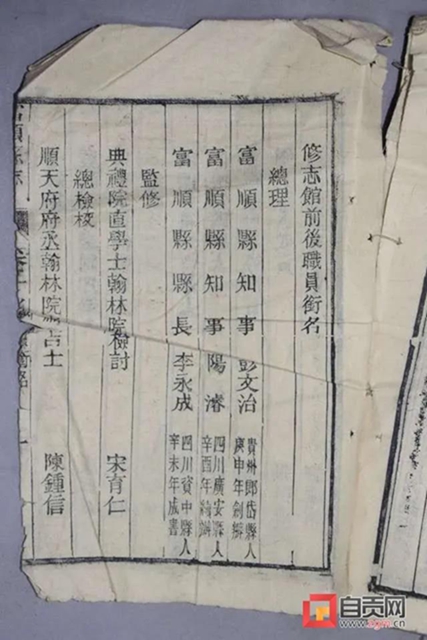 修志館前後職員銜名
總理
富順縣知事彭文治
貴州郎岱縣人
庚申年創辦
富順縣知事陽濬
四川廣安縣人
辛酉年續辦
富順縣縣長李永成
四川資中縣人
辛未年成書
監修
典禮院直學士翰林院檢討 宋育仁
總檢校
順天府府丞翰林院士 陳鍾信
順縣志
自贡网